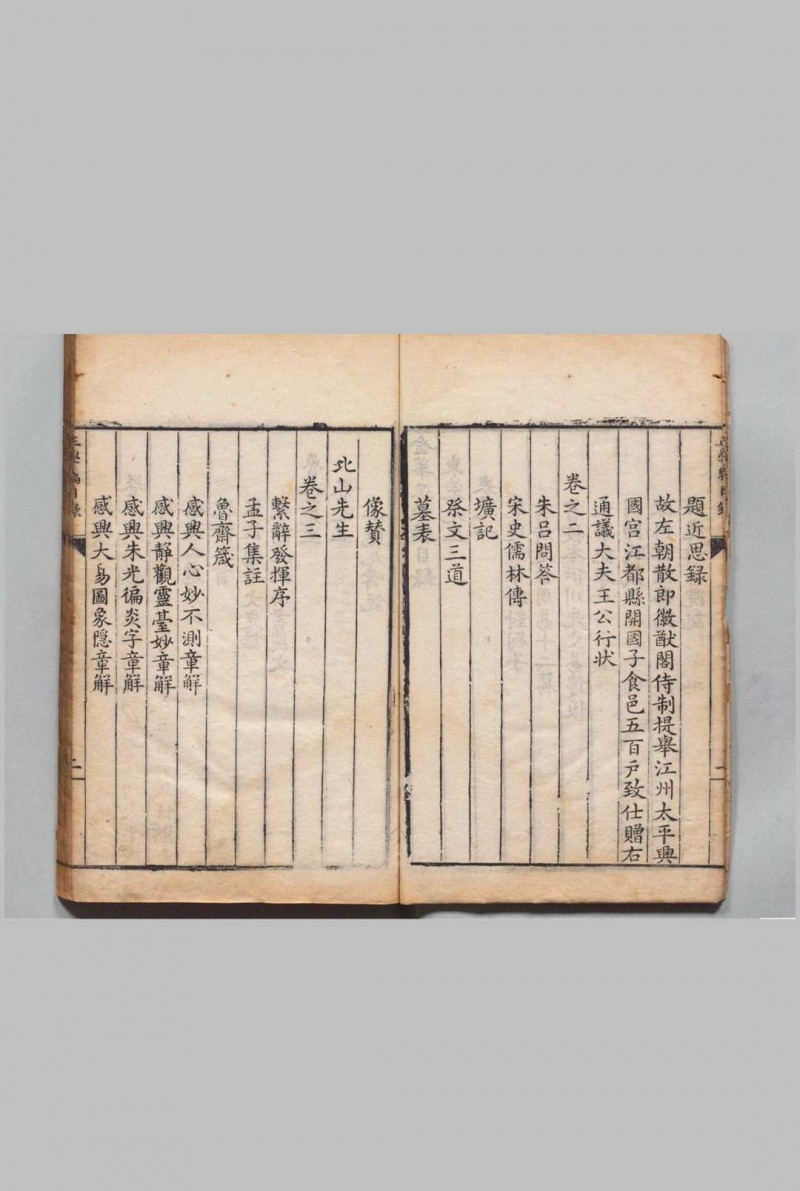 題近思録
故左朝散郎徽猷閣侍制提舉江州太平興
國宫江都縣開國子食邑五百戶致仕贈右
通議大夫王公行狀
卷之二
朱吕問答
宋史儒林傳
壙記
祭文三道
墓表
像賛
北山先生
卷之三
繫辭發揮序
孟子集註
魯齋箴
感興人心妙不測章解
感興靜觀靈臺妙章解
感興朱光徧炎字章解
感興大易圖象隠章解
二